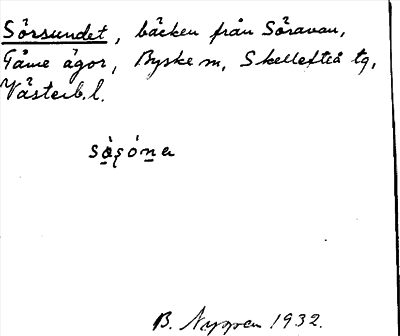 Sörsundet, bäcken från Söravan,
Gåme ägor, Byske m, Skellefteå tg,
Västerb. l.
B. Nygren 1932.